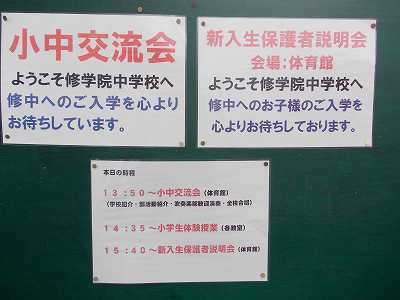 小中交流会
ようこそ修学院中学校へ
修中へのご入学を心より
お待ちしています。
新入生保護者説明会
会場:体育館
ようこそ修学院中学校へ
修中へのお子様のご入学を
心よりお待ちしております。
本日の時程
13:50~小中交流会(体育館)
(学校紹介・部活動紹介・吹奏楽部歓迎演奏・全校合唱)
14:35~小学生体験授業(各教室)
15:40~新入生保護者説明会(体育館)